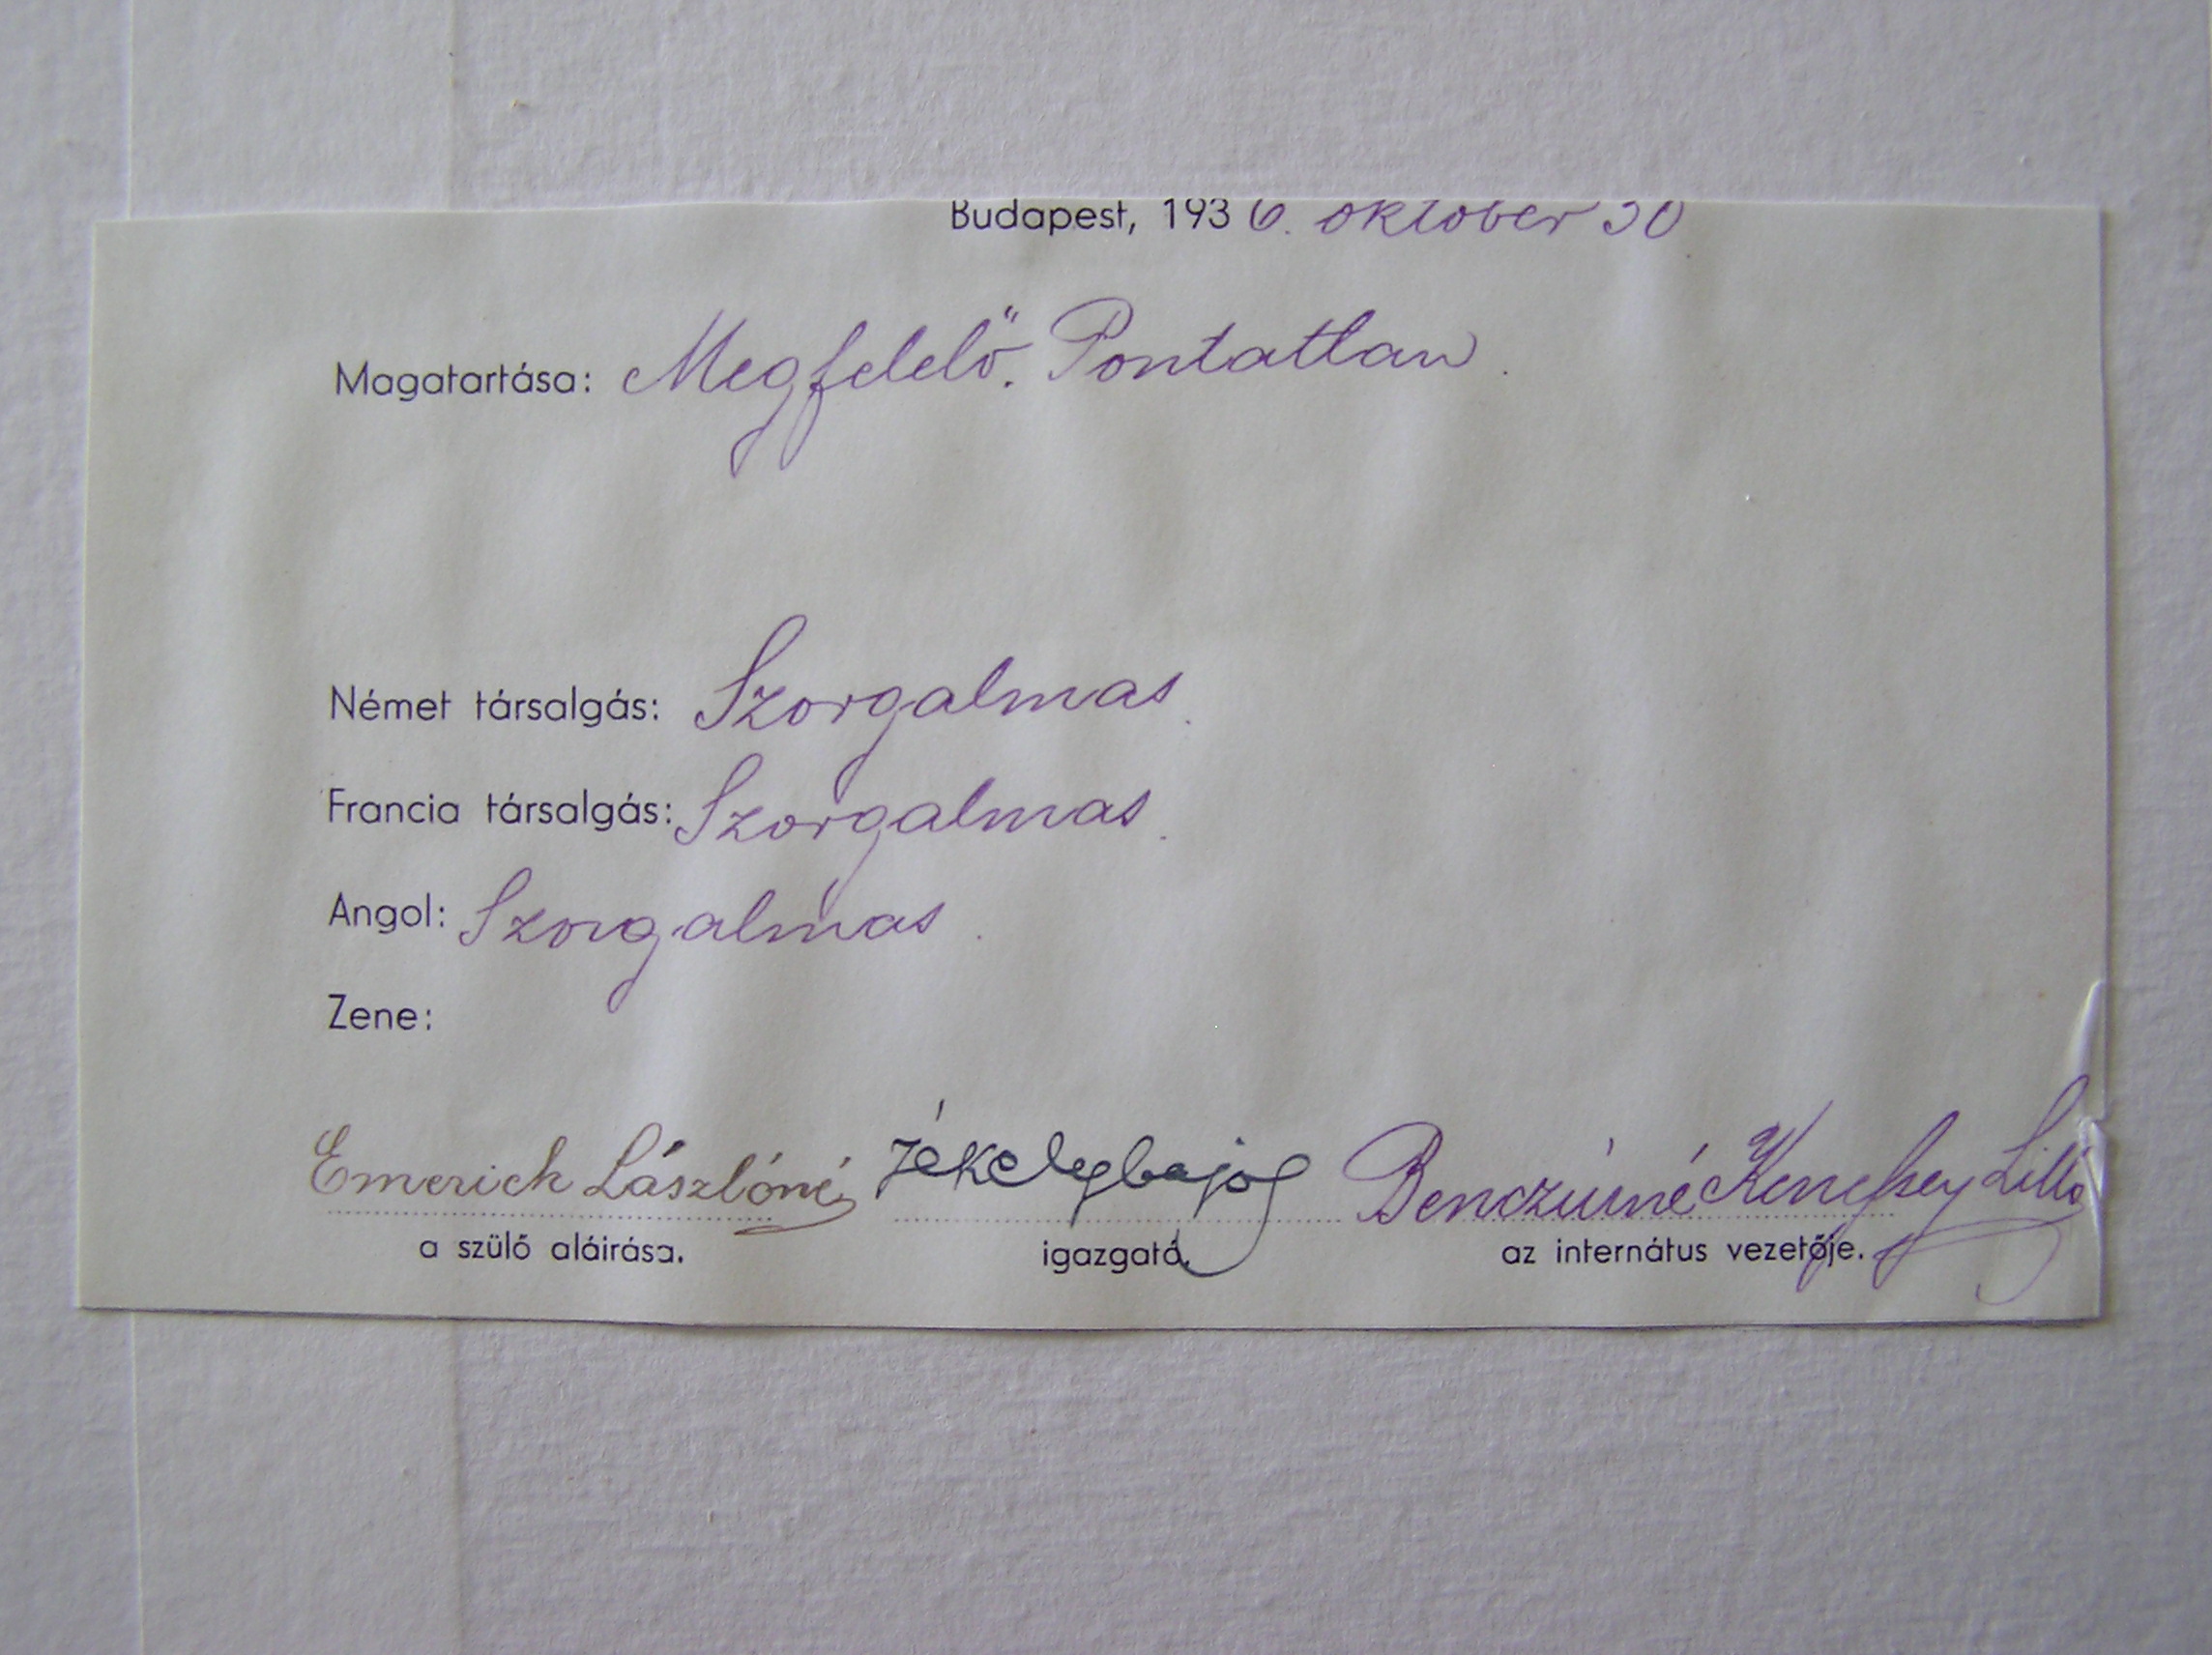 Budapest, 1936. október 30
Magatartása: Megfelelő. Pontatlan.
Német társalgás: Szorgalmas.
Francia társalgás: Szorgalmas.
Angol: Szorgalmas.
Zene:
Emerich Lászlóné Benczúrné Kenessey Lilla
a szülő aláirása. igazgató. az internátus vezetője.